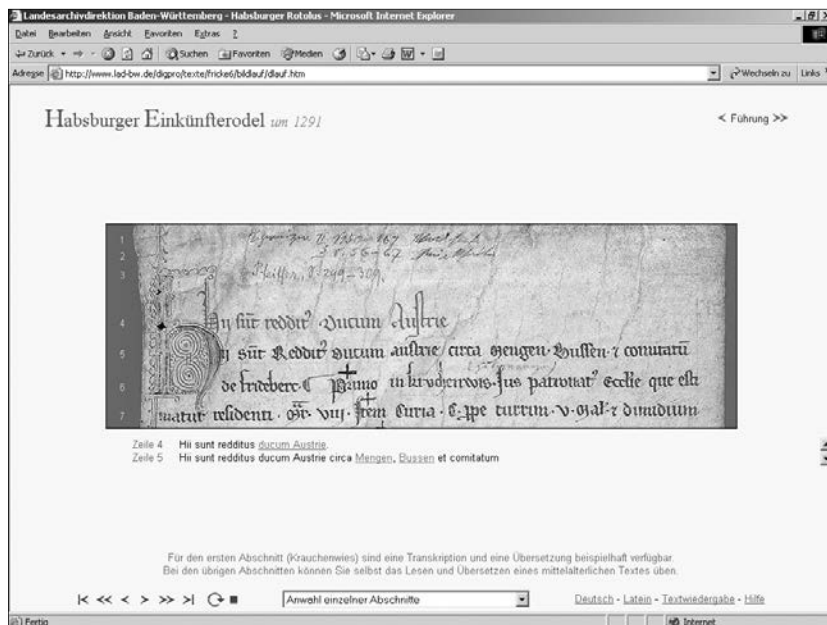 Landesarchivdirektion Baden-Württemberg - Habsburger Rotolus - Microsoft Internet Explorer
Datei Bearbeiten Ansicht Favoriten Extras ?
Zurück Suchen Favoriten Medien
Adresse http://www.lad-bw.de/digpro/texte/fricke6/bildlauf/dlauf.htm Wechseln zu Links
Habsburger Einkünfterodel um 1291 < Führung >>
1
2
3 Pfeiffer, S. 299-309.
4 Hij sūt reddit⁹ Ducum Austrie
5 Hij sūt Reddit⁹ Ducum austrie circa Mengen. Bussen. ⁊ comitatū
6 de frideberc. Primo in Ius patronat⁹ Ecclie que est
7 residenti. viij. Item Curia. turrim. v. mal. ⁊ dimidium
Zeile 4 Hii sunt redditus ducum Austrie.
Zeile 5 Hii sunt redditus ducum Austrie circa Mengen, Bussen et comitatum
Für den ersten Abschnitt (Krauchenwies) sind eine Transkription und eine Übersetzung beispielhaft verfügbar.
Bei den übrigen Abschnitten können Sie selbst das Lesen und Übersetzen eines mittelalterlichen Textes üben.
|< << < > >> >| Anwahl einzelner Abschnitte Deutsch - Latein - Textwiedergabe - Hilfe
Fertig Internet